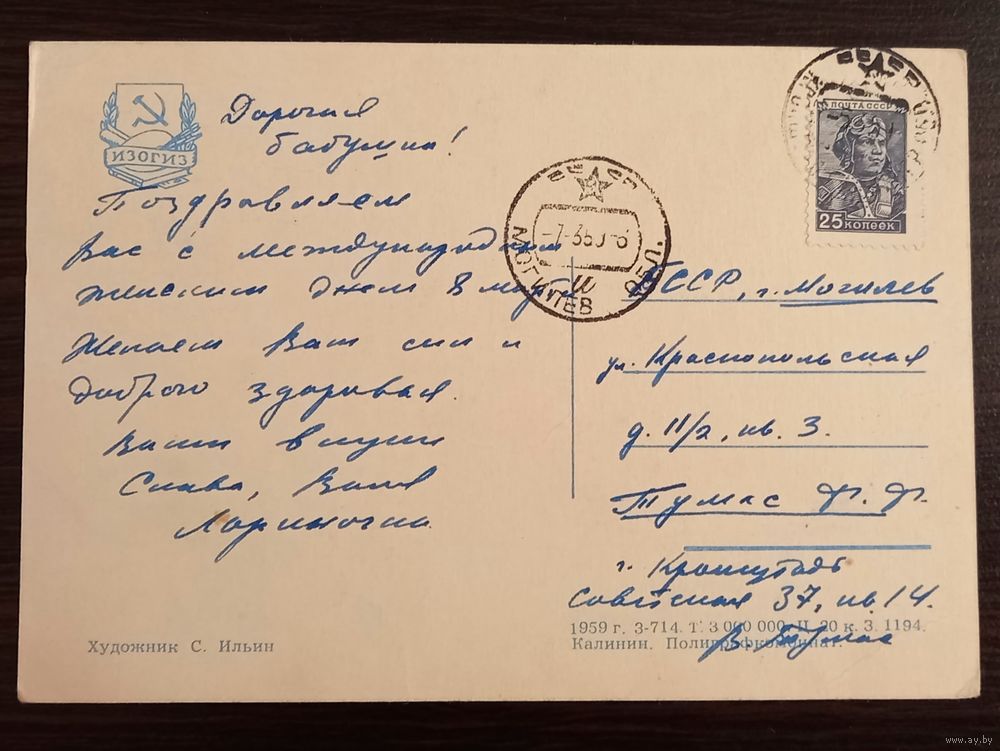 ИЗОГИЗ
Дорогая
бабушка!
Поздравляем
Вас с международным
женским днем 8 марта
Желаем Вам сил и
доброго здоровья.
Ваши внуки
Слава, Валя
Лариночка
ПОЧТА СССР
25 КОПЕЕК
МОГИЛЕВ ОБЛ.
БССР, г. Могилев
ул. Краснопольская
д. 11/2, кв. 3.
Тумас Ф. Ф.
г. Кронштадт
Советская 37, кв 14.
В. Тумас
Художник С. Ильин
1959 г. З-714. Т. 3 000 000. Ц. 20 к. З. 1194.
Калинин. Полиграфкомбинат.
www.ay.by